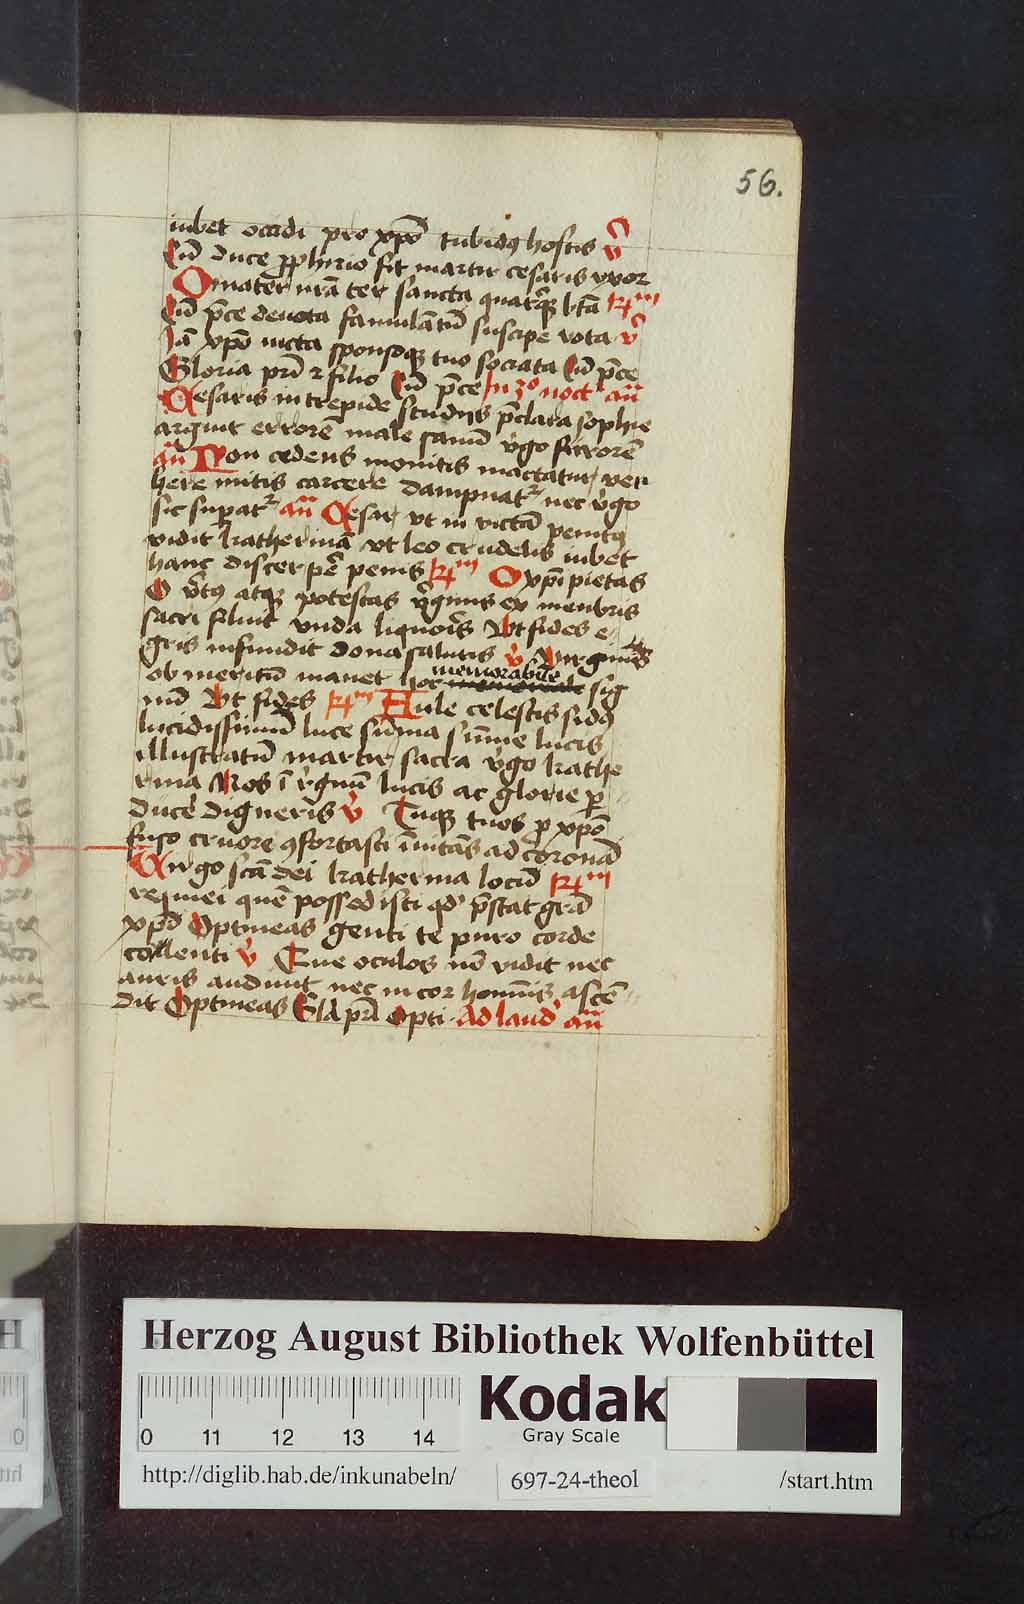 56.
iubet occidi pro xpō tubidꝰ hostis v̄
Cū duce ꝓphirio fit martir cesaris vxor
O mater nr̄a ter sancta quaterqꝫ btā Rm
Cū p̄ce deuota famulātū suscipe vota v̄
Iā xpō iucta sponsoqꝫ tuo sociata Cū p̄ce
Gloria pri ⁊ filio Cū p̄ce In 3o noct an̄
Cesaris intrepide studijs p̄clara sophie
arguit errorē male sanū v̄go furorē
an̄ Non cedens monitis mactatur ver
bere mitis carcere dampnatr nec v̄go
sic suꝑatr an̄ Cesar vt in victā penitꝰ
vidit katherinā vt leo crudelis iubet
hanc discerpē penis Rm O xpi pietas
O v̄tꝰ atqꝫ potestas v̄ginis ex menbris
sacri fluit vnda liquoris Vt fides e
gris infundit dona salutis v̄ Virginis
ob meritū manet hoc memorabile sig
nū Vt fides Rm Aule celestis sidꝰ
lucidissimū luce sūma sūme lucis
illustratū martir sacra v̄go kathe
rina Nos ī r̄gnū lucis ac glorie ꝑ
ducē digneris v̄ Tuqꝫ tuos ꝓ xpō
fuso cruore ꝯfortasti inuitās ad coronā
Virgo scā dei katherina locū Rm
regmei quē possedisti qd' p̄stat grā
xpi Optineas genti te puro corde
collenti v̄ Que oculos nō vidit nec
auris audiuit nec in cor hominis ascē
dit Optineas Glā pri Opti Ad laud' an̄
Herzog August Bibliothek Wolfenbüttel
0 11 12 13 14
Kodak
Gray Scale
http://diglib.hab.de/inkunabeln/
697-24-theol
/start.htm